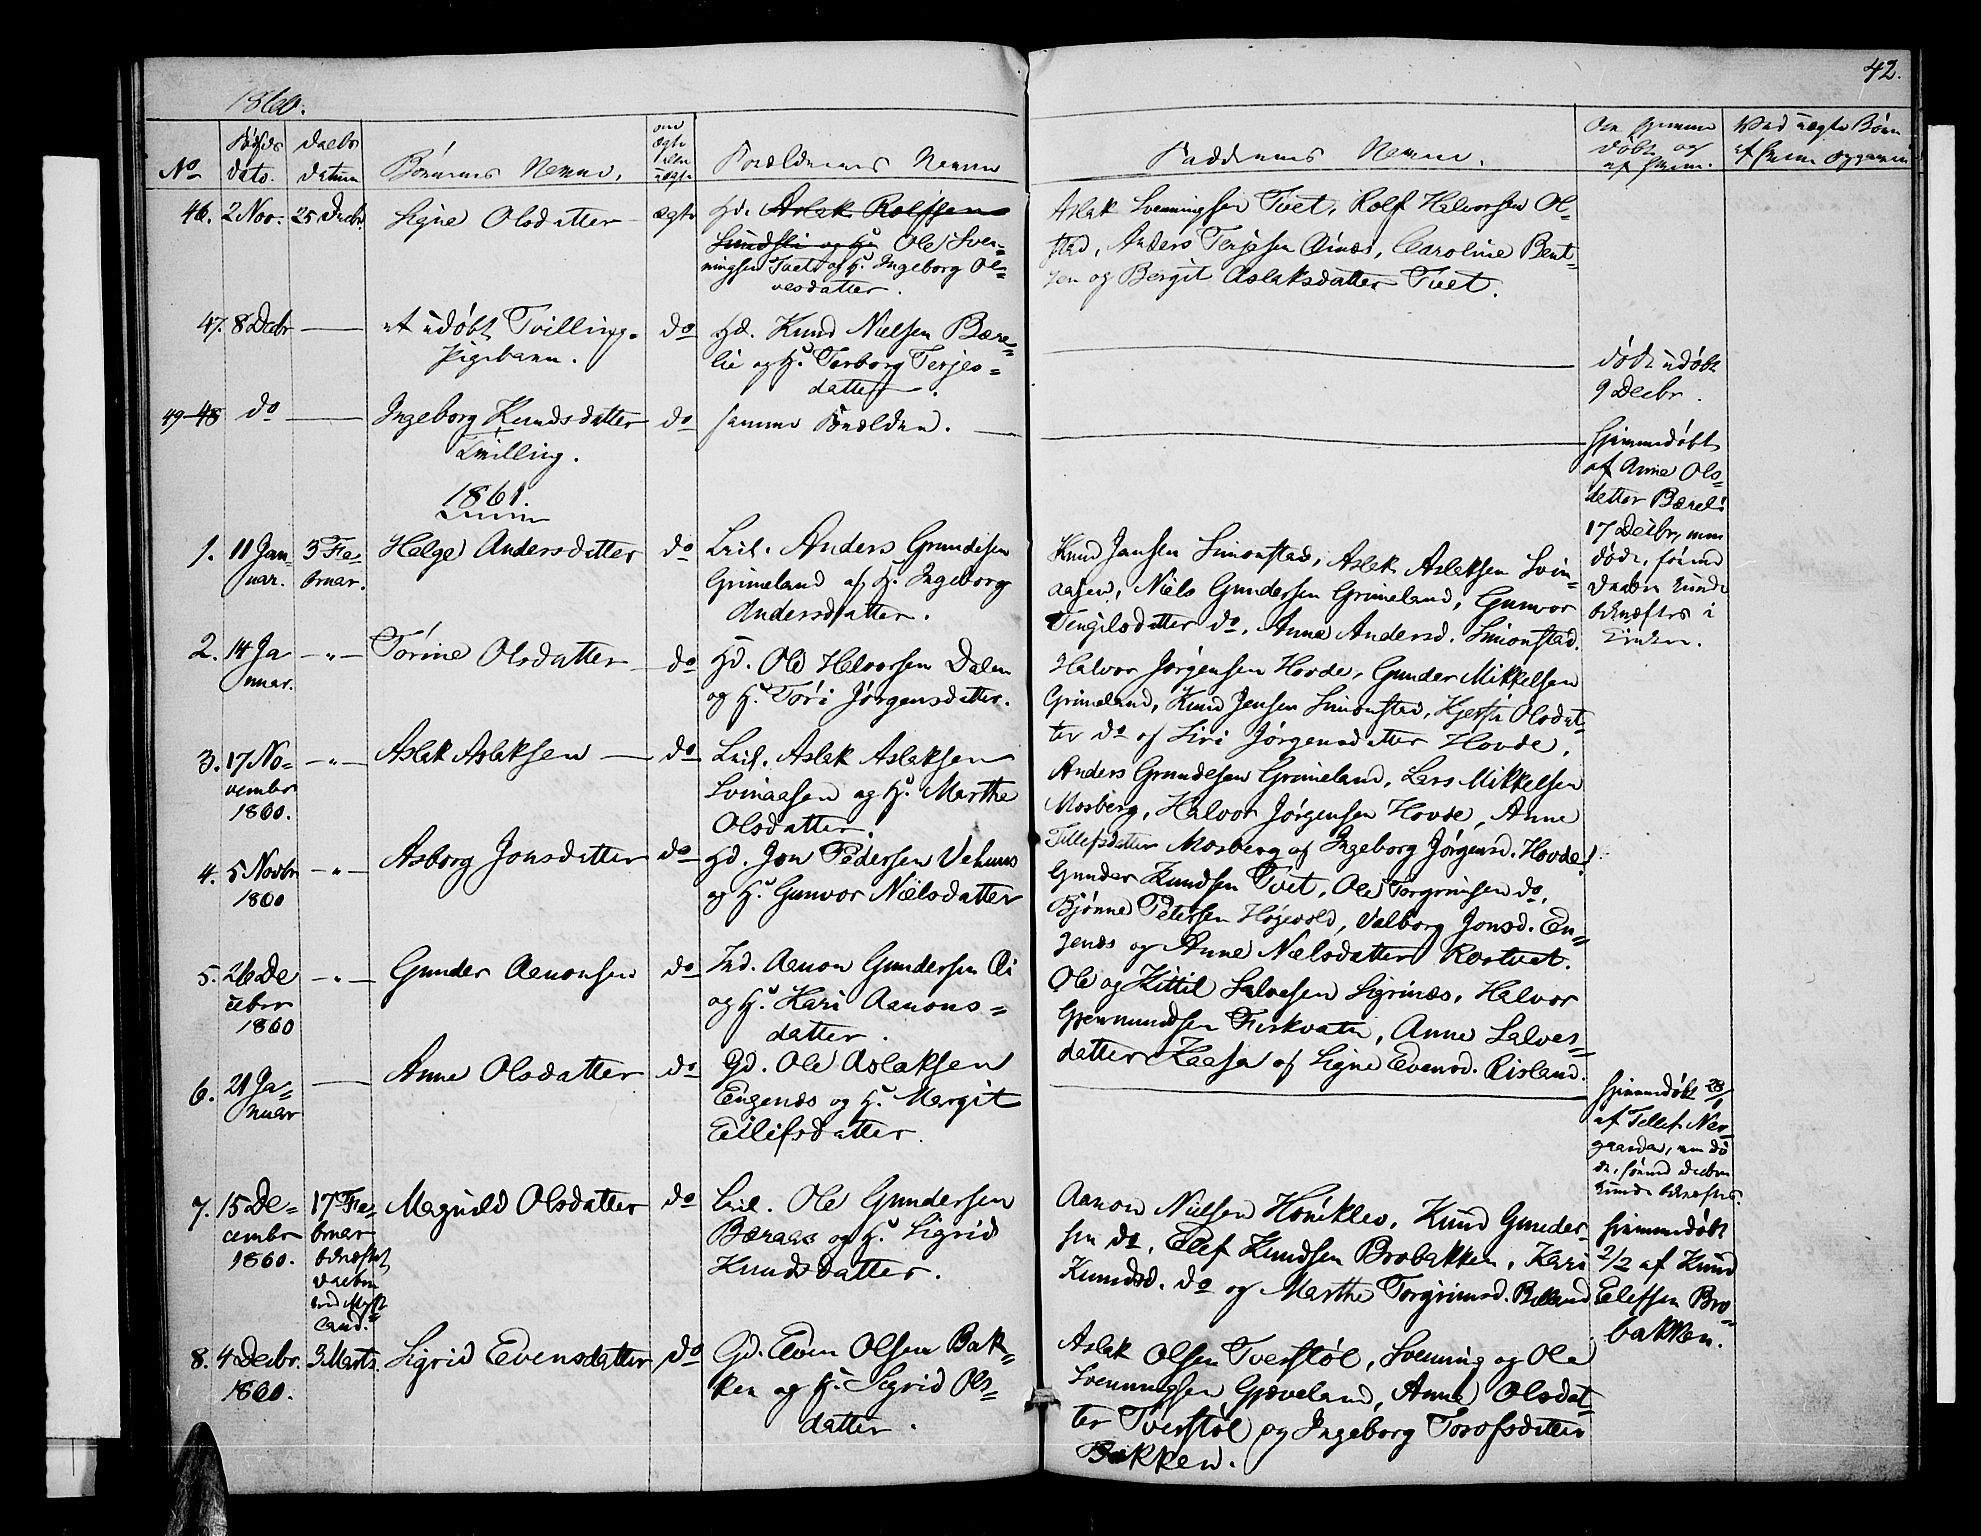 42.
1860.
No
Fødsels dato.
Daabs datum
Børnenes Navne.
om ægte eller uægte
Forældrenes Navne
Faddernes Navne.
Om hjemmedøbt og af hvem.
Ved uægte Børn af hvem opgiven
46. 2 Nov. 25 Decbr. Signe Olsdatter ægte Gd. Aslak Rolfsen
Simdsli og H. Ole Sven-
ningsen Tvet og H. Ingeborg Ol-
vesdatter.
Aslak Svenningsen Tvet, Rolf Halvorsen Ol-
stad, Anders Terjesen Æinæs, Caroline Bent-
sen og Bergit Aslaksdatter Tvet.
47. 8 Decbr et udøbt Tvilling-
Pigebarn.
do Hd. Knud Nielsen Bære-
lie og H. Torborg Terjes-
datter.
døde udøbt
9 Decbr.
49 48 do Ingeborg Knudsdatter
Tvilling.
do samme Forældre.
hjemmedøbt
af Anne Ols-
datter Bæreli
17 Decbr, men
døde, førend
Daaben kunde
bekræftes i
Kirken.
1861.
1. 11 Jan-
uar.
3 Fe-
bruar.
Helge Andersdatter do Leil. Anders Grundesen
Grimeland og H. Ingeborg
Andersdatter.
Knud Jansen Simonstad, Aslak Aslaksen Svin-
aasen, Niels Gundersen Grimeland, Gunvor
Tengilsdatter do, Anne Andersd. Simonstad.
2. 14 Ja
nuar.
-"- Torine Olsdatter do Hd. Ole Halvorsen Dalen
og H. Tori Jørgensdatter.
Halvor Jørgensen Hovde, Gunder Mikkelsen
Grimeland, Knud Jensen Simonstad, Kjersti Olsdat-
ter do og Siri Jørgensdatter Hovde.
3. 17 No-
vember
1860.
-"- Aslak Aslaksen do Leil. Aslak Aslaksen
Svinaasen og H. Marthe
Olsdatter.
Anders Grundesen Grimeland, Lars Mikkelsen
Mosberg, Halvor Jørgensen Hovde, Anne
Tellefsdatter Mosberg og Ingeborg Jørgensd. Hovde.
4. 5 Novbr
1860
-"- Asborg Jonsdatter do Hd. Jon Pedersen Vehuus
og H. Gunvor Nielsdatter
Gunder Knudsen Tvet, Ole Torgrimsen do,
Bjønne Petersen Høgevold, Valborg Jonsd. En-
genæs og Anne Nielsdatter Rostvet.
5. 26 De
cebr
1860
-"- Gunder Aanonsen do Ind. Aanon Gundersen Æi
og H. Kari Aanons-
datter.
Ole og Kittil Salvesen Sigrinæs, Halvor
Gjermundsen Fiskvatn, Anne Salves-
datter Kaasa og Signe Evensd. Risland.
6. 21 Ja-
nuar
Anne Olsdatter do Gd. Ole Aslaksen
Engenæs og H. Margit
Eilifsdatter.
hjemmedøbt 28/1
af Tellef Nor-
gaarden, men dø
de, førend Daaben
kunde bekræftes.
7. 15 De-
cember
1860.
17 Fe-
bruar
bekræftet
Daaben
ved Myk-
land.
Magnild Olsdatter do Leil. Ole Gundersen
Bæraas og H. Sigrid
Knudsdatter.
Aanon Nielsen Honeklev, Knud Gunder-
sen do, Elef Knudsen Brobakken, Kari
Knudsd. do og Marthe Torgrimsd. Belland
hjemmedøbt
2/2 af Knud
Elefsen Bro-
bakken.
8. 4 Decbr.
1860.
3 Marts. Sigrid Evensdatter do Gd. Even Olsen Bak-
ken og H. Sigrid Ols-
datter.
Aslak Olsen Tverstøl, Svenning og Ole
Svenningsen Gjæveland, Anne Olsdat-
ter Tverstøl og Ingeborg Torofsdatter
Bakken.